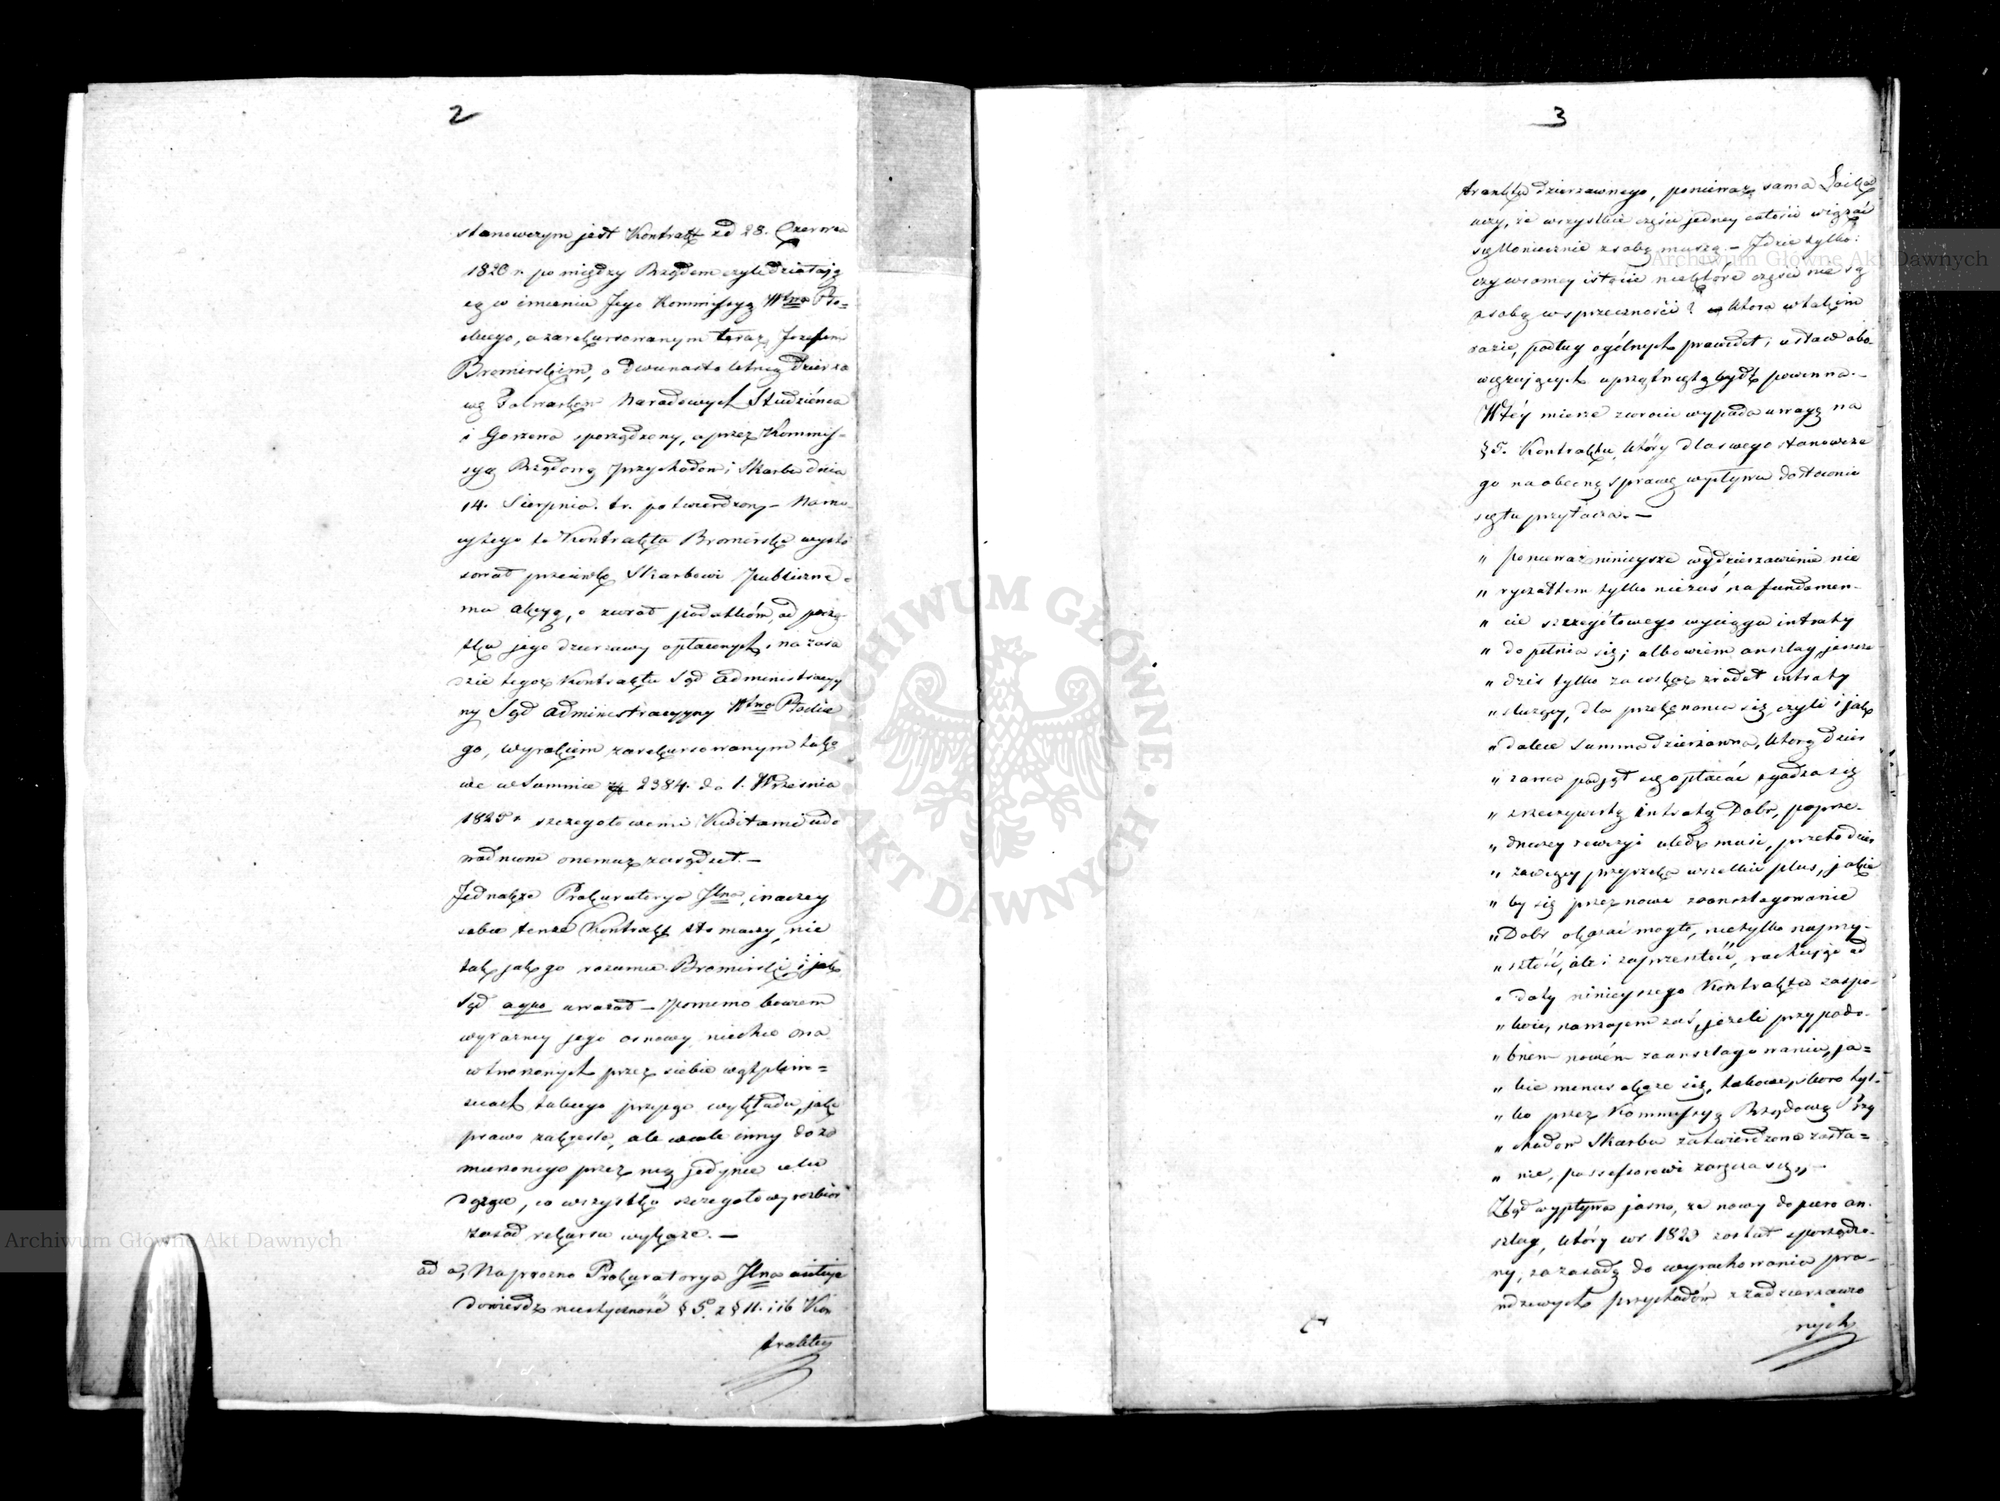 2
stanowczym jest Kontrakt z d 28. Czerwca
1820 r. pomiędzy Rządem czyli działają
cą w imieniu Jego Kommissyą Wtwa Pło-
ckiego, a zarekursowanym teraz Józefem
Bromirskim, o dwunasto letnią dzierża
wę Folwarków Narodowych Studzieńca
i Gorzena sporządzony, a przez Kommis-
syą Rządową Przychodów i Skarbu dnia
14. Sierpnia t.r. potwierdzony – Na mo
cy tego to Kontraktu Bromirski wysto
sował przeciwko Skarbowi Publiczne-
mu akcyą, o zwrot podatków, od począ
tku jego dzierżawy opłaconych, na zasa
dzie tegoż Kontraktu Sąd Administracyy
ny Sąd Administracyyny Wtwa Płockie
go, wyrokiem zarekursowanym tako
we w Summie zł 2384. do 1. Września
1825 r szczegółowemi Kwitami udo
wodnione onemuż zasądził. –
Jednakże Prokuratorya Jlna, inaczey
sobie tenże Kontrakt tłomaczy, nie
tak jak go rozumie Bromirski i jak
Sąd a quo uważał – pomimo bowiem
wyraźney jego osnowy, niechce ona
w tworzonych przez siebie wątpliwo=
ściach takiego przyjąć wykładu, jaki
prawo zakreśla, ale wcale inny do za
mierzonego przez nią jedynie celu
dążąc, co wszystko szczegółowy rozbiór
zasad rekursu wykaże. –
ad a, Na prozno Prokuratorya Jlna usiłuje
dowieść niestyczność § 5. z § 11. i 16 Kon
traktu
3
traktu dzierzawnego, ponieważ sama Logika
uczy, że wszystkie części jedney całości wiązać
się koniecznie z sobą muszą. – Idzie tylko:
czy w samey istocie niektóre części nie są
z sobą w sprzeczności? – która w takim
razie, podług ogólnych prawideł i ustaw obo-
wiązujących uprzątniętą bydź powinna. –
W tey mierze zwrócić wypada uwagę na
§ 5. Kontraktu, który dla swego stanowcze
go na obecną sprawę wpływu dosłownie
się tu przytacza. –
" ponieważ ninieysze wydzierżawienie nie
" ryczałtem tylko nie zaś na fundamen-
" cie szczegółowego wyciągu intraty
" dopełnia się; albowiem anszlag, jeszcze
" dziś tylko za wskaz źródeł intraty
" służący, dla przekonania się, czyli i jak
" dalece Summa dzierżawna, którą dzier
" żawca podjął się opłacać zgadza się
" z rzeczywistą intratą Dobr, poprze-
" dniczey rewizyi uledz musi, przeto dzier
" żawcy przyrzeka wszelkie plus, jakie
" by się przez nowe zaanszlagowanie
" Dobr okazać mogło, nietylko na przy-
" szłość, ale i za przeszłość, rachując od
" daty ninieyszego Kontraktu zaspo-
" koić, nawzajem zaś, jeżeli przy podo-
" bnem nowém zaanszlagowaniu, ja=
" kie minus okaże się, takowe, skoro tyl-
" ko przez Kommissyą Rządową Przy
" chodów Skarbu zatwierdzone zosta=
" nie, possessorowi zarzeka się,, –
Ztąd wypływa jasno, że nowy dopiero an-
szlag, który w r 1823 został sporządzo-
ny, za zasadę do wyrachowania pra-
wdziwych przychodów z zadzierżawio
nych